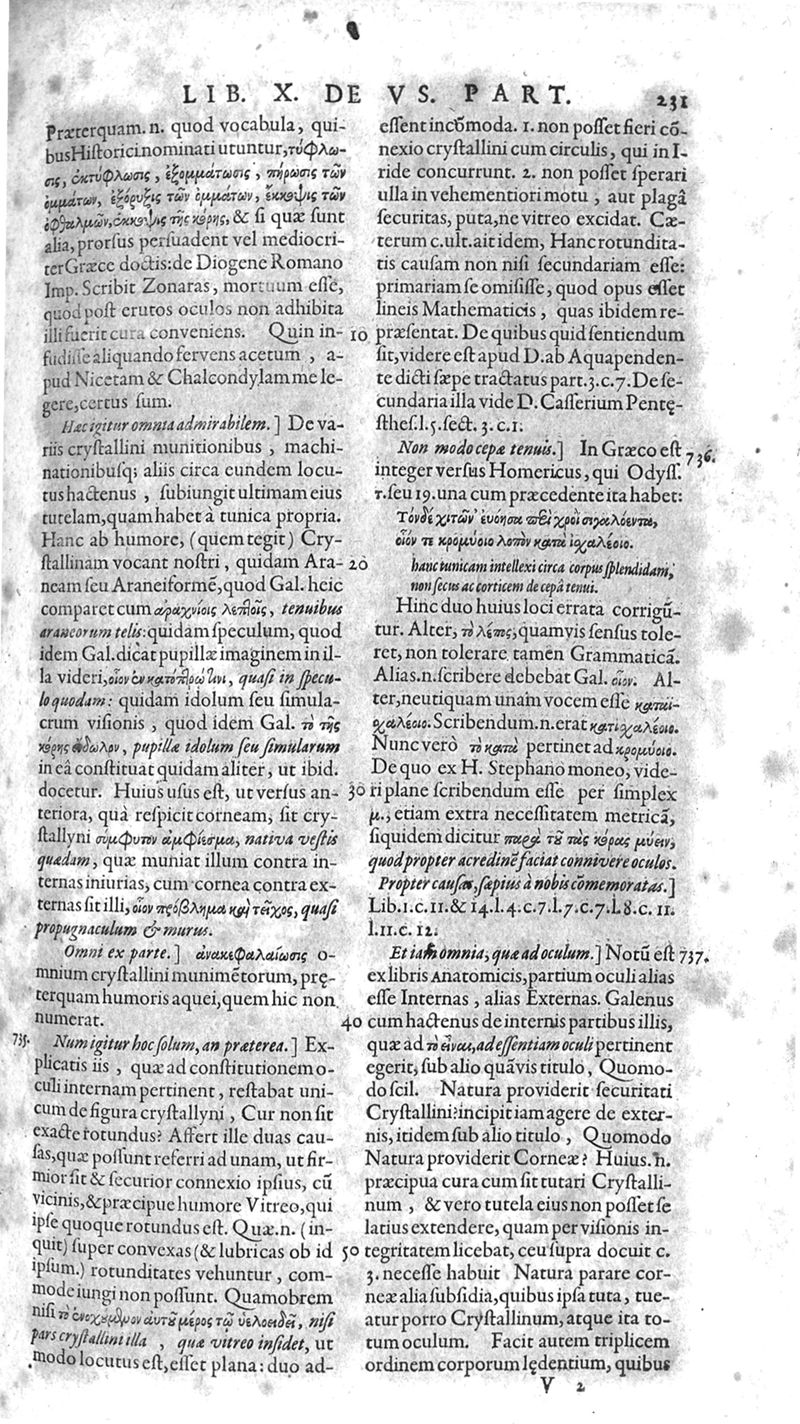 LIB. X. DE VS. PART.
231
Præterquam. n. quod vocabula, qui-
bus Historici nominati utuntur, τύφλω-
σις, ἐκτύφλωσις, ἐξομμάτωσις, πήρωσις τῶν
ὀμμάτων, ἐξόρυξις τῶν ὀμμάτων, ἔκκοψις τῶν
ὀφθαλμῶν, ἐκκοψις τῆς κόρης, & si quæ sunt
alia, prorsus persuadent vel mediocri-
ter Græce doctis: de Diogene Romano
Imp. Scribit Zonaras, mortuum esse,
quod post erutos oculos non adhibita
illi fuerit cura conveniens. Quin in-
fudisse aliquando fervens acetum, a-
pud Nicetam & Chalcondylam me le-
gere, certus sum.
Hæc igitur omnia admirabilem.] De va-
riis crystallini munitionibus, machi-
nationibusq; aliis circa eundem locu-
tus hactenus, subiungit ultimam eius
tutelam, quam habet à tunica propria.
Hanc ab humore, (quem tegit) Cry-
stallinam vocant nostri, quidam Ara-
neam seu Araneiformē, quod Gal. heic
comparet cum ἀραχνίοις λεπτοῖς, tenuibus
araneorum telis: quidam speculum, quod
idem Gal. dicat pupillæ imaginem in il-
la videri, οἷον ἐν κατόπτρῳ τινι, quasi in specu-
lo quodam: quidam idolum seu simula-
crum visionis, quod idem Gal. τὸ τῆς
κόρης εἴδωλον, pupillæ idolum seu simularum
in eâ constituat quidam aliter, ut ibid.
docetur. Huius usus est, ut versus an-
teriora, quà respicit corneam, sit cry-
stallyni σύμφυτον ἀμφίεσμα, nativa vestis
quædam, quæ muniat illum contra in-
ternas iniurias, cum cornea contra ex-
ternas sit illi, οἷον πρόβλημα καὶ τεῖχος, quasi
propugnaculum & murus.
Omni ex parte.] ἀνακεφαλαίωσις o-
mnium crystallini munimētorum, prę-
terquam humoris aquei, quem hic non
numerat.
735. Num igitur hoc solum, an præterea.] Ex-
plicatis iis, quæ ad constitutionem o-
culi internam pertinent, restabat uni-
cum de figura crystallyni, Cur non sit
exacte rotundus? Affert ille duas cau-
sas, quæ possunt referri ad unam, ut fir-
mior sit & securior connexio ipsius, cū
vicinis, & præcipue humore Vitreo, qui
ipse quoque rotundus est. Quæ. n. (in-
quit) super convexas (& lubricas ob id
ipsum.) rotunditates vehuntur, com-
mode iungi non possunt. Quamobrem
nisi τὸ ἐνοχούμενον αὐτοῦ μέρος τῷ ὑελοειδεῖ, nisi
pars crystallini illa, quæ vitreo insidet, ut
modo locutus est, esset plana: duo ad-
10
20
30
40
50
essent incōmoda. 1. non posset fieri cō-
nexio crystallini cum circulis, qui in I-
ride concurrunt. 2. non posset sperari
ulla in vehementiori motu, aut plagâ
securitas, puta, ne vitreo excidat. Cæ-
terum c. ult. ait idem, Hanc rotundita-
tis causam non nisi secundariam esse:
primariam se omisisse, quod opus esset
lineis Mathematicis, quas ibidem re-
præsentat. De quibus quid sentiendum
sit, videre est apud D. ab Aquapenden-
te dicti sæpe tractatus part. 3. c. 7. De se-
cundaria illa vide D. Casserium Pentę-
sthes. l. 5. sect. 3. c. 1.
Non modo cepæ tenuis.] In Græco est 736.
integer versus Homericus, qui Odyss.
τ. seu 19. una cum præcedente ita habet:
Τὸν δὲ χιτῶν' ἐνόησα περὶ χροῒ σιγαλόεντα,
οἷόν τε κρομύοιο λοπὸν κατὰ ἰσχαλέοιο.
hanc tunicam intellexi circa corpus splendidam,
non secus ac corticem de cepâ tenui.
Hinc duo huius loci errata corrigū-
tur. Alter, τὸ λέπος, quamvis sensus tole-
ret, non tolerare tamen Grammaticā.
Alias. n. scribere debebat Gal. οἷον. Al-
ter, neutiquam unam vocem esse καται-
σχαλέοιο. Scribendum. n. erat κατ ἰσχαλέοιο.
Nunc verò τὸ κατὰ pertinet ad κρομύοιο.
De quo ex H. Stephano moneo, vide-
ri plane scribendum esse per simplex
μ., etiam extra necessitatem metricā,
siquidem dicitur παρὰ τοῦ τὰς κόρας μύειν,
quod propter acredinē faciat connivere oculos.
Propter causas, sæpius à nobis cōmemoratas.]
Lib. 1. c. 11. & 14. l. 4. c. 7. l. 7. c. 7. l. 8. c. 11.
l. 11. c. 12.
Et iam omnia, quæ ad oculum.] Notū est 737.
ex libris Anatomicis, partium oculi alias
esse Internas, alias Externas. Galenus
cum hactenus de internis partibus illis,
quæ ad τὸ εἶναι, ad essentiam oculi pertinent
egerit, sub alio quāvis titulo, Quomo-
do scil. Natura providerit securitati
Crystallini? incipit iam agere de exter-
nis, itidem sub alio titulo, Quomodo
Natura providerit Corneæ? Huius. n.
præcipua cura cum sit tutari Crystalli-
num, & vero tutela eius non posset se
latius extendere, quam per visionis in-
tegritatem licebat, ceu supra docuit c.
3. necesse habuit Natura parare cor-
neæ alia subsidia, quibus ipsa tuta, tue-
atur porro Crystallinum, atque ita to-
tum oculum. Facit autem triplicem
ordinem corporum lędentium, quibus
V 2